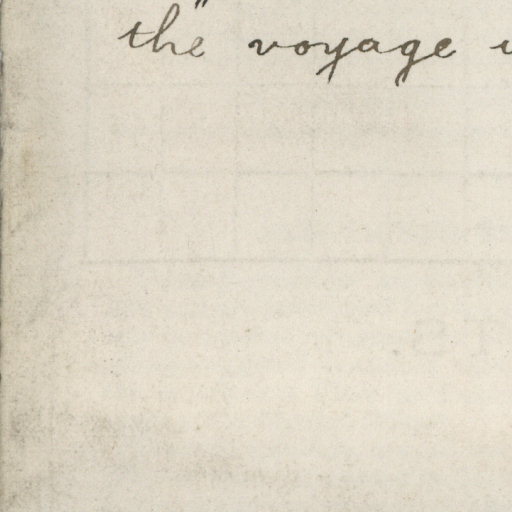 the voyage